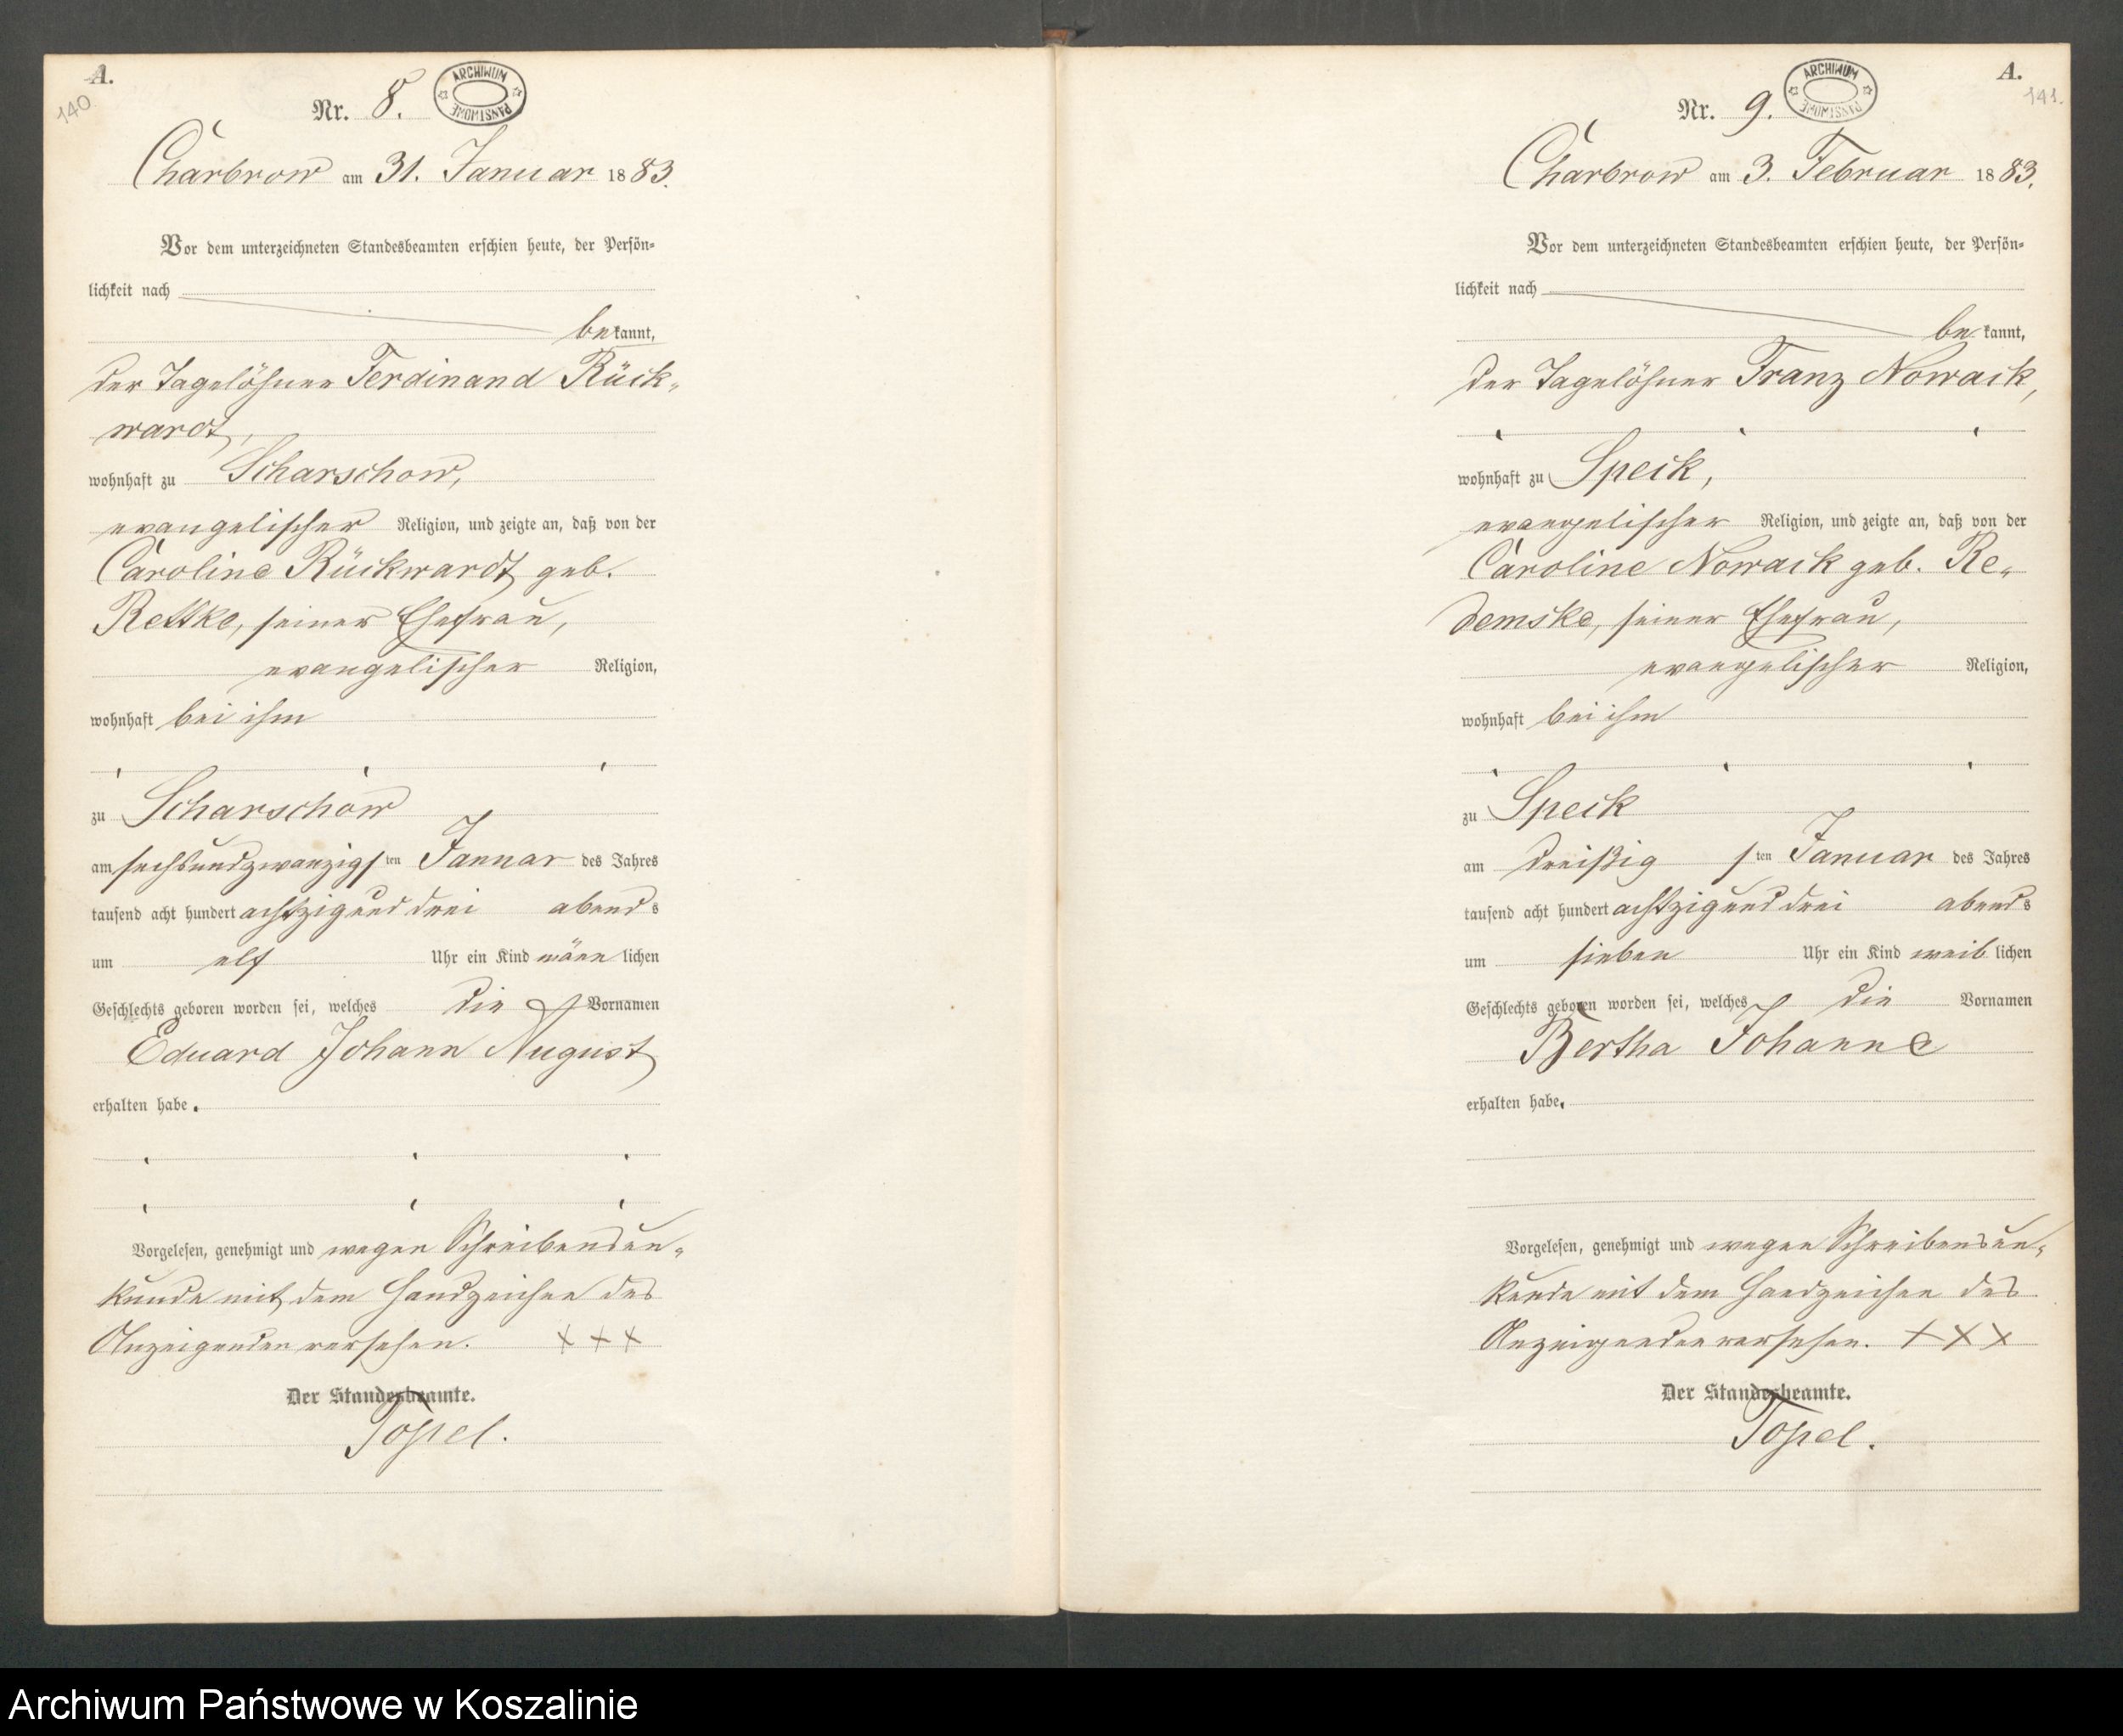 A.
140
Nr. 8.
ARCHIWUM PAŃSTWOWE
Charbrow am 31. Januar 1883.
Vor dem unterzeichneten Standesbeamten erschien heute, der Persön=
lichkeit nach
bekannt,
der Tagelöhner Ferdinand Rück=
wardt,
wohnhaft zu Scharschow,
evangelischer Religion, und zeigte an, daß von der
Caroline Rückwardt geb.
Rettke, seiner Ehefrau,
evangelischer Religion,
wohnhaft bei ihm
zu Scharschow
am sechsundzwanzigsten Januar des Jahres
tausend acht hundert achtzig und drei abends
um elf Uhr ein Kind männlichen
Geschlechts geboren worden sei, welches die Vornamen
Eduard Johann August
erhalten habe.
Vorgelesen, genehmigt und wegen Schreibensun=
kunde mit dem Handzeichen des
Anzeigenden versehen. +++
Der Standesbeamte.
Topel.
A.
141.
Nr. 9.
ARCHIWUM PAŃSTWOWE
Charbrow am 3. Februar 1883.
Vor dem unterzeichneten Standesbeamten erschien heute, der Persön=
lichkeit nach
bekannt,
der Tagelöhner Franz Nowack,
wohnhaft zu Speck,
evangelischer Religion, und zeigte an, daß von der
Caroline Nowack geb. Re=
demske, seiner Ehefrau,
evangelischer Religion,
wohnhaft bei ihm
zu Speck
am dreißigsten Januar des Jahres
tausend acht hundert achtzig und drei abends
um sieben Uhr ein Kind weiblichen
Geschlechts geboren worden sei, welches die Vornamen
Bertha Johanne
erhalten habe.
Vorgelesen, genehmigt und wegen Schreibensun=
kunde mit dem Handzeichen des
Anzeigenden versehen. +++
Der Standesbeamte.
Topel.
Archiwum Państwowe w Koszalinie